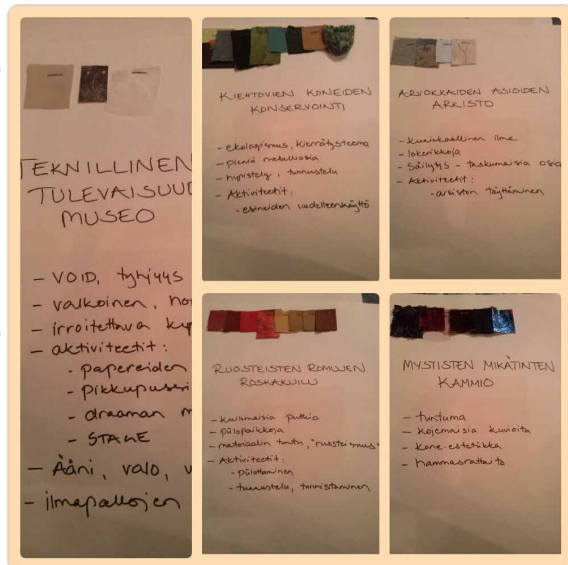 TEKNILLINEN
TULEVAISUUD
MUSEO
- VOID, tyhjyys
- valkoinen, ho
- irroitettava
- aktiviteetit:
- papereiden
- pikkupuseri
- draaman m
- STAGE
- Ääni, valo, v
- ilmapallojen
KIEHTOVIEN KONEIDEN
KONSERVOINTI
- ekologismus, kierrätysteema
- pieniä metalliosia
- hypistely, tunnustelu
- Aktiviteetit:
- esineiden uudelleenkäyttö
ARVOKKAIDEN ASIOIDEN
ARKISTO
- ilme
- lokerikkoja
- Säilytys - taskumaisia osia
- Aktiviteetit:
- arkiston täyttäminen
RUOSTEISTEN ROMUJEN
ROSKAKUILU
- kulkumaisia putkia
- piilopaikkoja
- materiaalin tuntu, "ruosteismus"
- Aktiviteetit:
- piilottaminen
- tunnustelu, tunnistaminen
MYSTISTEN MIKÄTINTEN
KAMMIO
- tuntuma
- kuvioita
- kone-estetiikka
- hammasrattaita